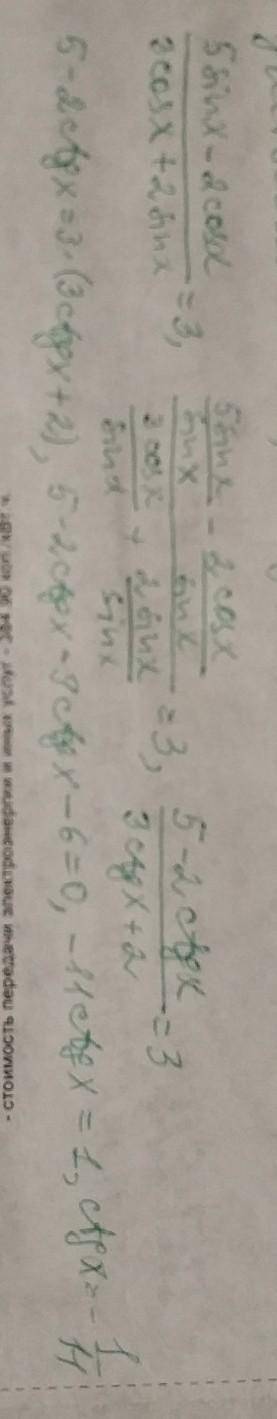 5 sin x - 2 cos x / 3 cos x + 2 sin x = 3, 5 sin x / sin x - 2 cos x / sin x / 3 cos x / sin x + 2 sin x / sin x = 3, 5 - 2 ctg x / 3 ctg x + 2 = 3
5 - 2 ctg x = 3 · (3 ctg x + 2), 5 - 2 ctg x - 9 ctg x - 6 = 0, - 11 ctg x = 1, ctg x = - 1 / 11
- стоимость передачи электроэнергии и иных услуг - 384, 90 коп./кВт. ч.